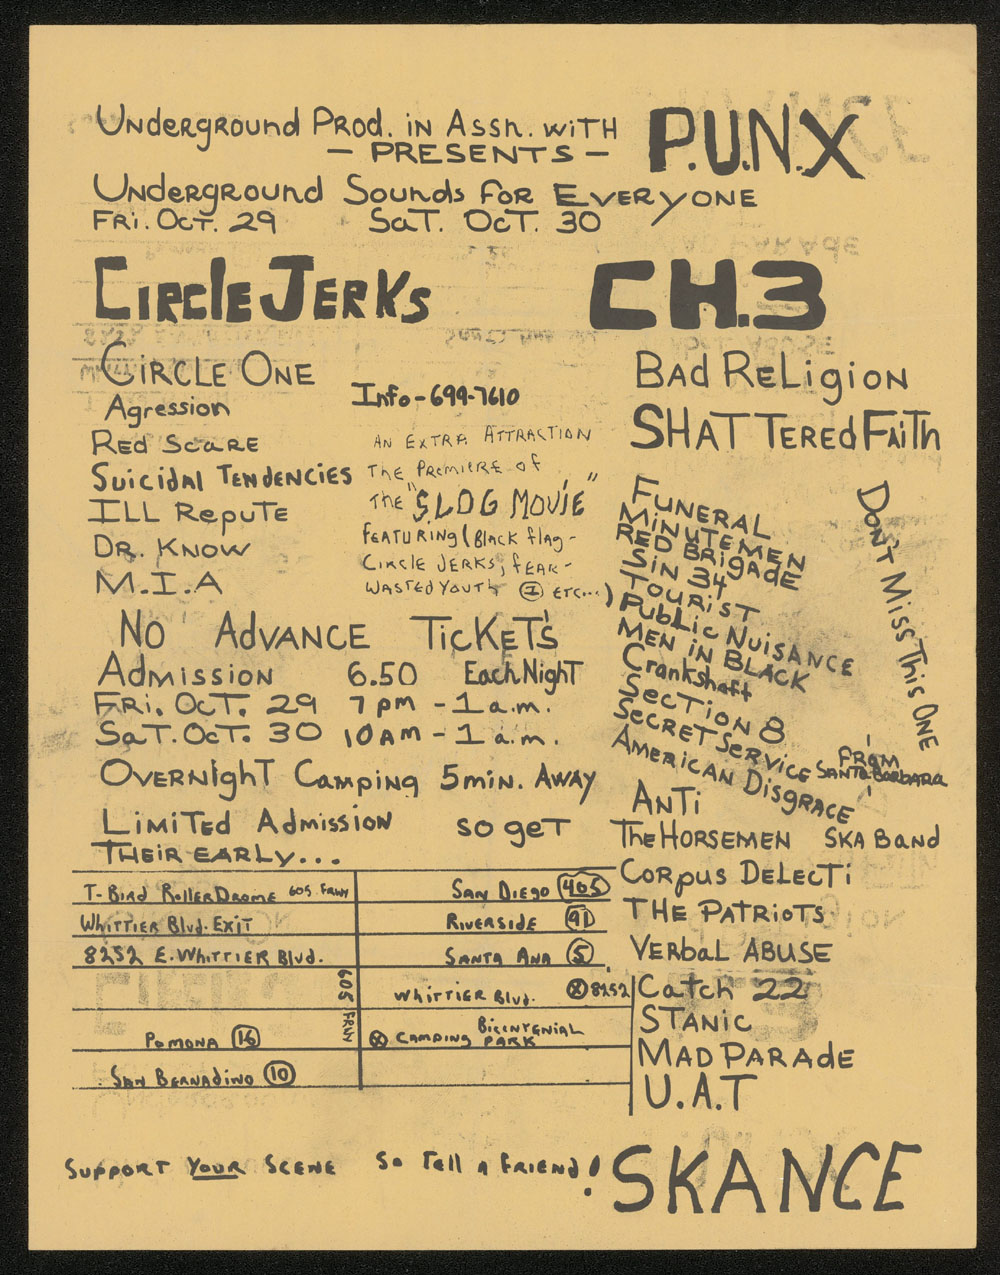 Underground Prod. in Assn. with P.U.N.X
- PRESENTS -
Underground Sounds for Everyone
Fri. Oct. 29 Sat. Oct. 30
Circle Jerks
Circle One
Agression
Red Scare
Suicidal Tendencies
Ill Repute
Dr. Know
M.I.A
Info-699-7610
An Extra Attraction
The Premiere of
The "SLOG MOVIE"
Featuring (Black flag-
Circle Jerks, fear-
Wasted Youth ① etc...)
CH.3
Bad Religion
Shattered Faith
Funeral
Minutemen
Red Brigade
Sin 34
Tourist
Public Nuisance
Men in Black
Crankshaft
Section 8
Secret Service
from
Santa Barbara
American Disgrace
Don't Miss This One
Anti
The Horsemen Ska Band
Corpus Delecti
The Patriots
Verbal Abuse
Catch 22
Stanic
Mad Parade
U.A.T
SKANCE
No Advance Ticket's
Admission 6.50 Each Night
Fri. Oct. 29 7pm - 1 a.m.
Sat. Oct. 30 10AM - 1 a.m.
Overnight Camping 5min. Away
Limited Admission so get
Their early...
T-Bird RollerDrome 605 Frwy
Whittier Blvd. Exit
8252 E. Whittier Blvd.
605 Frwy
Pomona 16
San Bernadino 10
San Diego 405
Riverside 91
Santa Ana 5
Whittier Blvd. ⊗ 8252
Bicentenial
⊗ Camping Park
Support Your Scene So Tell a friend!